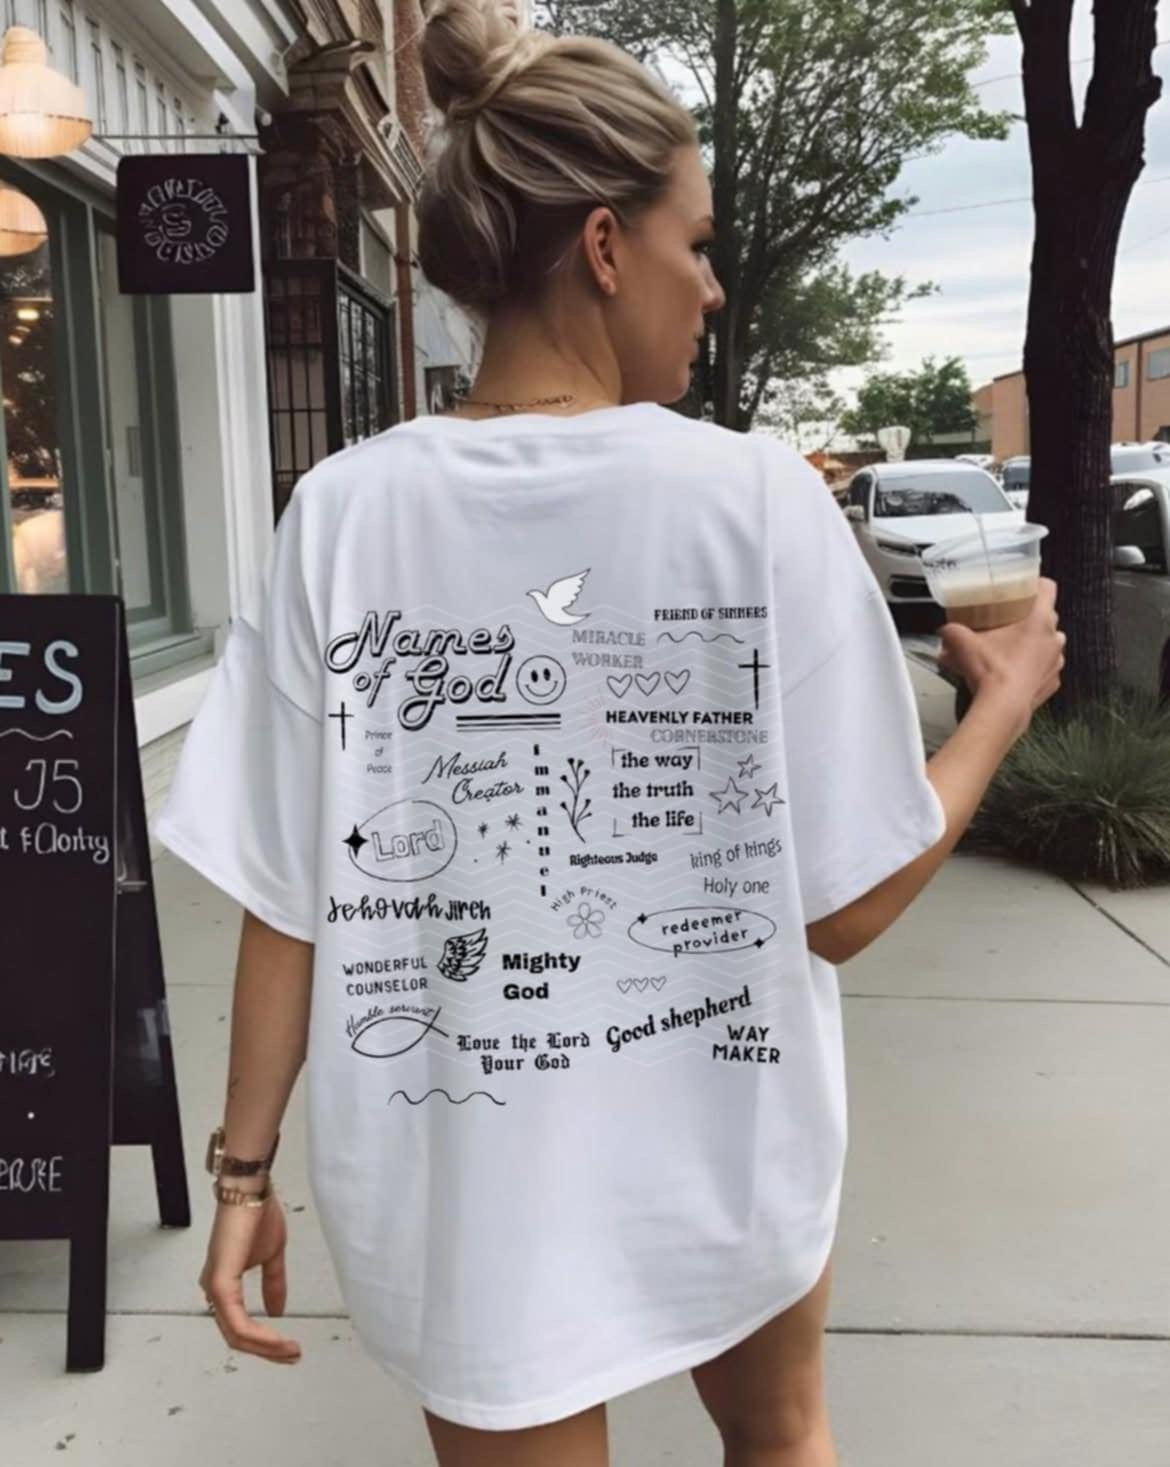 ES
J5
Names
of God
FRIEND OF SINNERS
MIRACLE
WORKER
HEAVENLY FATHER
CORNERSTONE
Prince
of
Peace
Messiah
Creator
Immanuel
the way
the truth
the life
Lord
Righteous Judge
king of kings
Holy one
High Priest
Jehovah Jireh
redeemer
provider
WONDERFUL
COUNSELOR
Mighty
God
Humble servant
Love the Lord
Your God
Good shepherd
WAY
MAKER